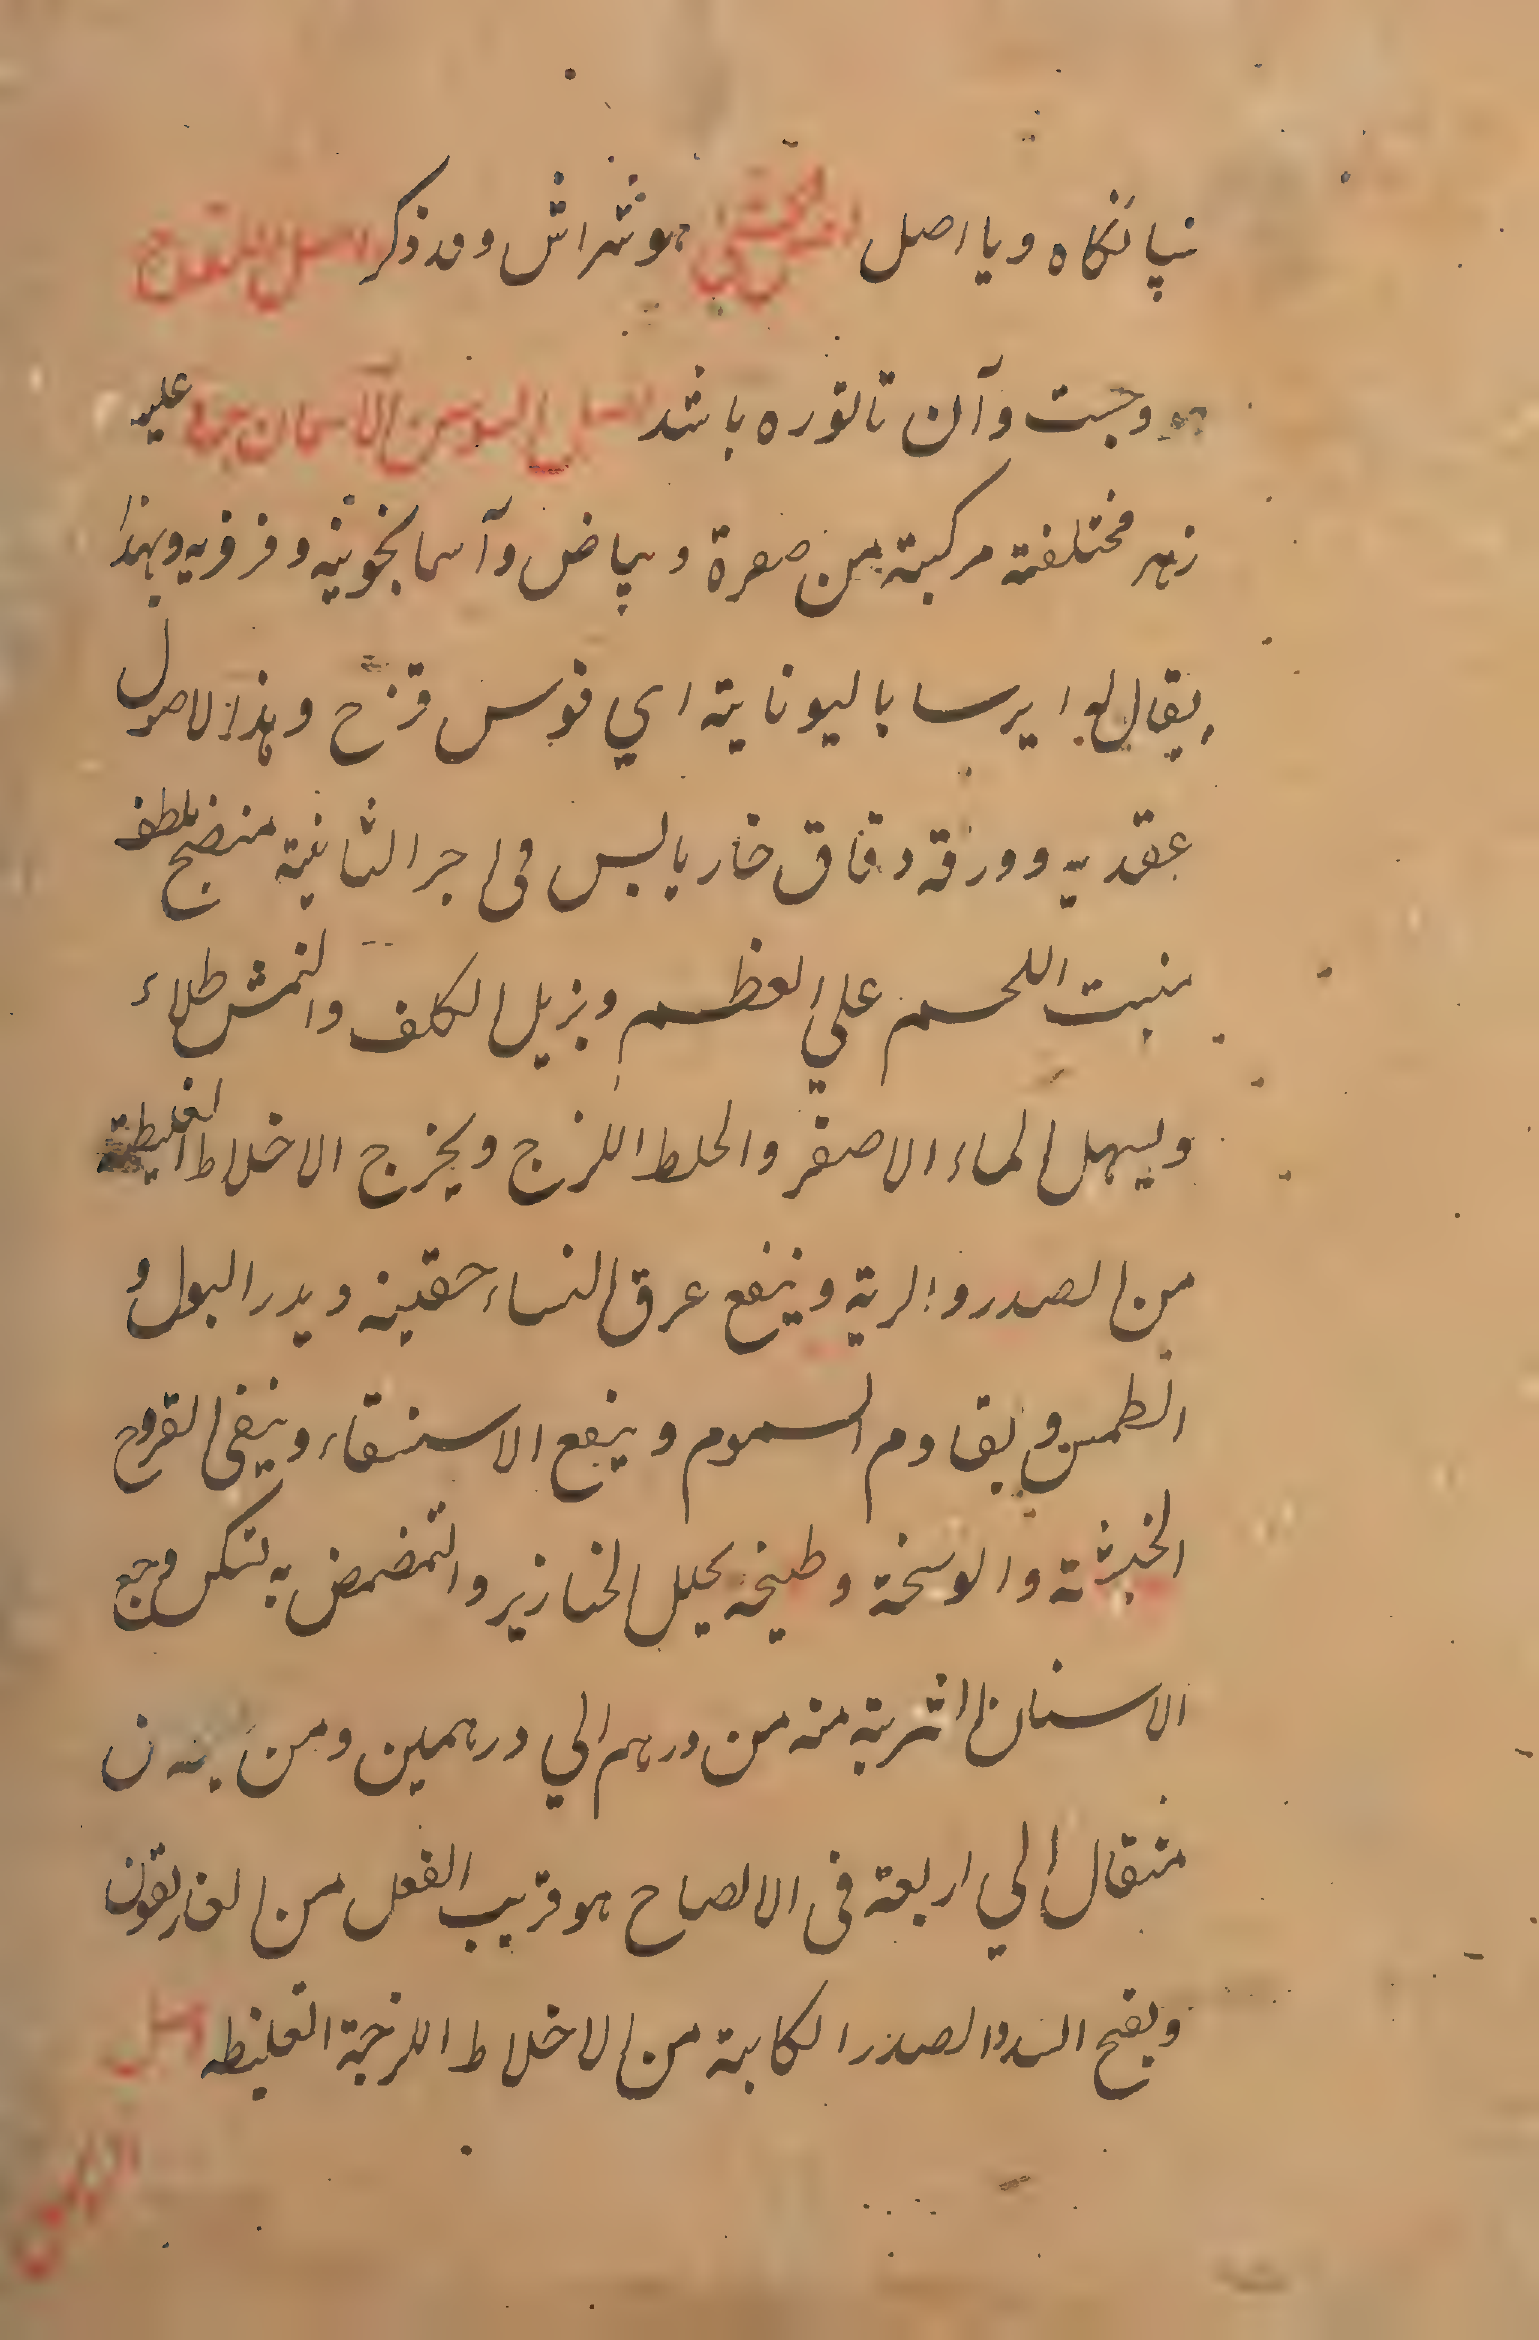 اصل هو شراش وقد ذكر
وجبت وآن تاتوره باشد اصل السوسن الاسمانجونى عليه
زهر مختلفة مركبة من صفرة وبياض وآسمانجونية وفرفريه وبهذا
يقال له ايرسا باليونانية اي قوس قزح وهذا الاصول
عقديه وورقه دقاق حار يابس فى اجر الثانية منضج ملطف
ينبت اللحم على العظم ويزيل الكلف والنمش طلاء
ويسهل الماء الاصفر والخلط اللزج ويخرج الاخلاط الغليظة
من الصدر والرية وينفع عرق النساء حقينه ويدر البول و
الطمس ويقاوم السموم وينفع الاستسقاء وينقى القروح
الخبيثة والوسخة وطبيخه يحلل الخنازير والتمضمض به يسكن وجع
الاسنان الشربة منه من درهم الي درهمين ومن
مثقال الي اربعة فى الالصاح هو قريب الفعل من الغاريقون
ويفتح السدد الصدر الكاينة من الاخلاط اللزجة الغليظه اصل